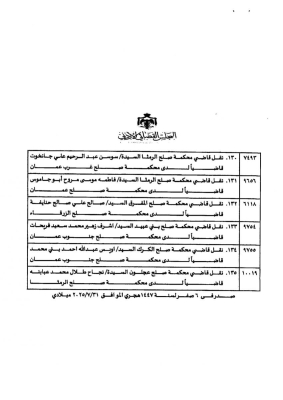 المجلس القضائي الأردني
٧٤٩٣ ١٣٠. نقل قاضي محكمة صلح الرمثا السيدة/ سوسن عبد الرحيم علي جانخوت
قاضياً لدى محكمة صلح غرب عمان
٩٦٥٦ ١٣١. نقل قاضي محكمة صلح الرمثا السيدة/ فاطمه موسى مروح أبو جاموس
قاضياً لدى محكمة صلح عمان
٦١١٨ ١٣٢. نقل قاضي محكمة صلح المفرق السيد/ صالح علي صالح حنايفة
قاضياً لدى محكمة صلح الزرقاء
٩٧٥٤ ١٣٣. نقل قاضي محكمة صلح بني عبيد السيد/ اشرف زهير محمد سعيد فريحات
قاضياً لدى محكمة صلح جنوب عمان
٩٧٥٥ ١٣٤. نقل قاضي محكمة صلح الكرك السيد/ اوس عبدالله احمد بني محمد
قاضياً لدى محكمة صلح جنوب عمان
١٠٠١٩ ١٣٥. نقل قاضي محكمة صلح عجلون السيدة/ نجاح طلال محمد عبابنه
قاضياً لدى محكمة صلح الرمثا
صدر في ٦ صفر لسنة ١٤٤٧ هجري الموافق ٢٠٢٥/٧/٣١ ميلادي